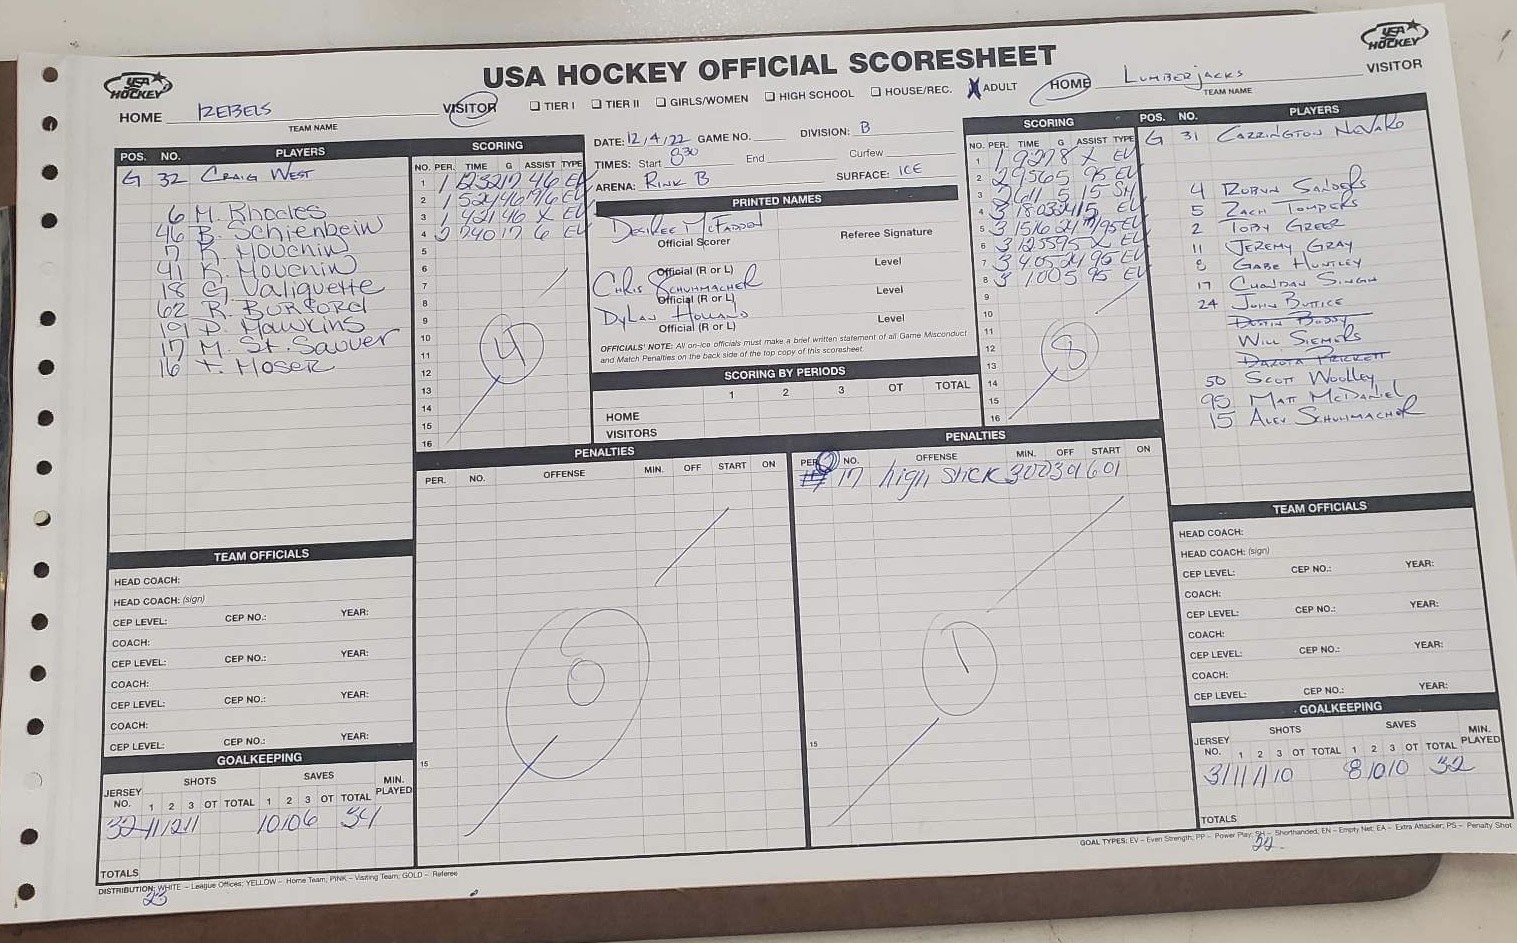 USA HOCKEY OFFICIAL SCORESHEET
USA HOCKEY
USA HOCKEY
HOME REBELS VISITOR
TEAM NAME
TIER I TIER II GIRLS/WOMEN HIGH SCHOOL HOUSE/REC. X ADULT
HOME LUMBERJACKS VISITOR
TEAM NAME
POS. NO. PLAYERS
G 32 CRAIG WEST
6 M. Rhodes
46 B. Schienbein
7 R. HOUCHIN
41 K. HOUCHIN
18 G. Valiquette
62 R. BURFORD
19 D. HAWKINS
17 M. St. Sauver
16 T. MOSER
SCORING
NO. PER. TIME G ASSIST TYPE
1 1 1232 17 46 EV
2 1 524 46 16 EV
3 1 421 46 X EV
4 2 740 17 6 EV
5
6
7
8
9
10
11
12
13
14
15
16
4
DATE: 12/4/22 GAME NO. DIVISION: B
TIMES: Start 8:30 End Curfew
ARENA: RINK B SURFACE: ICE
PRINTED NAMES
DESIREE MCFADDEN
Official Scorer Referee Signature
Official (R or L) Level
CHRIS SCHUHMACHER
Official (R or L) Level
DYLAN HOLLAND
Official (R or L) Level
OFFICIALS' NOTE: All on-ice officials must make a brief written statement of all Game Misconduct
and Match Penalties on the back side of the top copy of this scoresheet.
SCORING BY PERIODS
1 2 3 OT TOTAL
HOME
VISITORS
SCORING
NO. PER. TIME G ASSIST TYPE
1 1 927 8 X EV
2 2 956 5 95 EV
3 2 611 5 15 SH
4 3 1803 24 15 EV
5 3 1516 24 17/95 EV
6 3 1235 95 X EV
7 3 405 24 95 EV
8 3 100 5 95 EV
9
10
11
12
13
14
15
16
8
POS. NO. PLAYERS
G 31 CARRINGTON NOVAKO
4 ROBYN SANDERS
5 ZACH TOMPERS
2 TOBY GREER
11 JEREMY GRAY
8 GABE HUNTLEY
17 CHANDAN SINGH
24 JOHN BUTTICE
DUSTIN BUSBY
WILL SIEMERS
DAKOTA PRICKETT
50 SCOTT WOOLLEY
95 MATT MCDANIEL
15 ALEX SCHUHMACHER
PENALTIES
PER. NO. OFFENSE MIN. OFF START ON
15
0
PENALTIES
PER. NO. OFFENSE MIN. OFF START ON
17 high stick 3 00 391 601
15
1
TEAM OFFICIALS
HEAD COACH:
HEAD COACH: (sign)
CEP LEVEL: CEP NO.: YEAR:
COACH:
CEP LEVEL: CEP NO.: YEAR:
COACH:
CEP LEVEL: CEP NO.: YEAR:
COACH:
CEP LEVEL: CEP NO.: YEAR:
GOALKEEPING
SHOTS SAVES MIN. PLAYED
JERSEY NO. 1 2 3 OT TOTAL 1 2 3 OT TOTAL
32 11 12 11 10 10 6 34
TOTALS
TEAM OFFICIALS
HEAD COACH:
HEAD COACH: (sign)
CEP LEVEL: CEP NO.: YEAR:
COACH:
CEP LEVEL: CEP NO.: YEAR:
COACH:
CEP LEVEL: CEP NO.: YEAR:
COACH:
CEP LEVEL: CEP NO.: YEAR:
GOALKEEPING
SHOTS SAVES MIN. PLAYED
JERSEY NO. 1 2 3 OT TOTAL 1 2 3 OT TOTAL
31 11 11 10 8 10 10 32
TOTALS
GOAL TYPES: EV – Even Strength, PP – Power Play, SH – Shorthanded, EN – Empty Net, EA – Extra Attacker, PS – Penalty Shot
DISTRIBUTION: WHITE – League Offices; YELLOW – Home Team; PINK – Visiting Team; GOLD – Referee
23
22